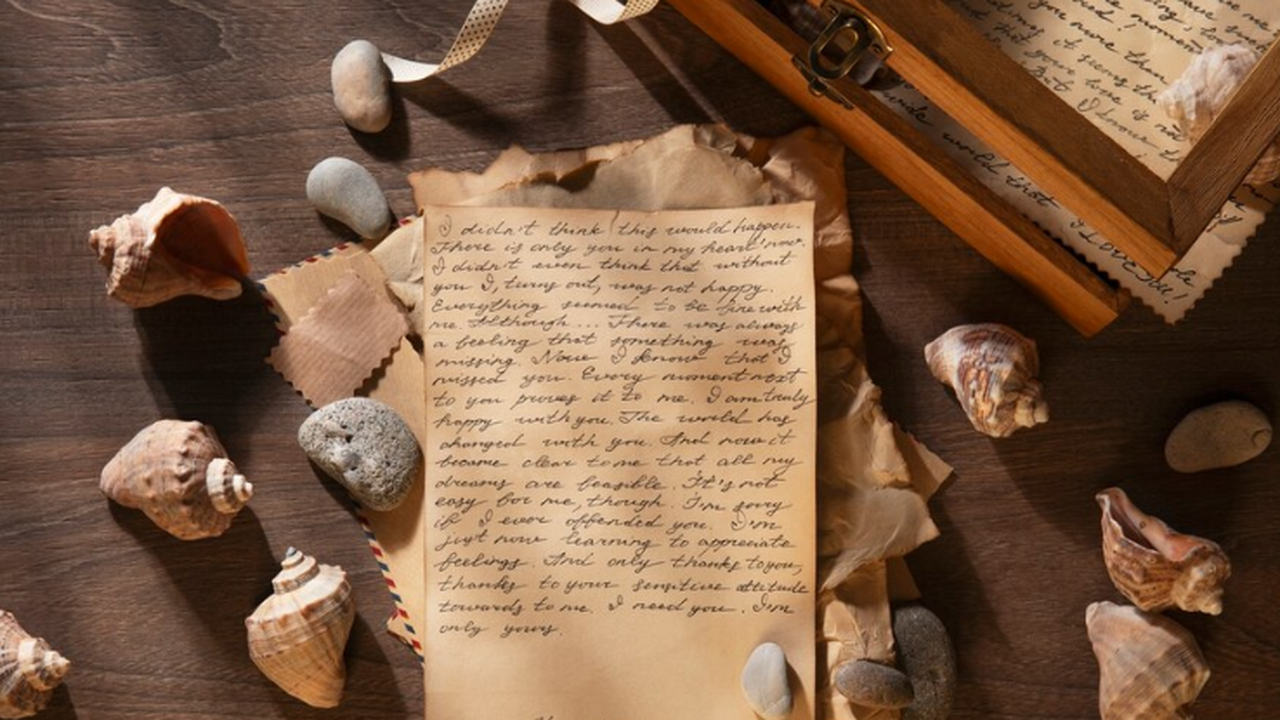 I didn't think this would happen.
There is only you in my heart now.
I didn't even think that without
you I, turns out, was not happy.
Everything seemed to be fine with
me. Although ... There was always
a feeling that something was
missing. Now I know that I
missed you. Every moment next
to you proves it to me. I am truly
happy with you. The world has
changed with you. And now it
became clear to me that all my
dreams are feasible. It's not
easy for me, though. I'm sorry
if I ever offended you. I'm
just now learning to appreciate
feelings. And only thanks to you,
thanks to your sensitive attitude
towards to me. I need you. I'm
only yours.
you more than
my it
seems th
love is no
I
wide world that I love you!